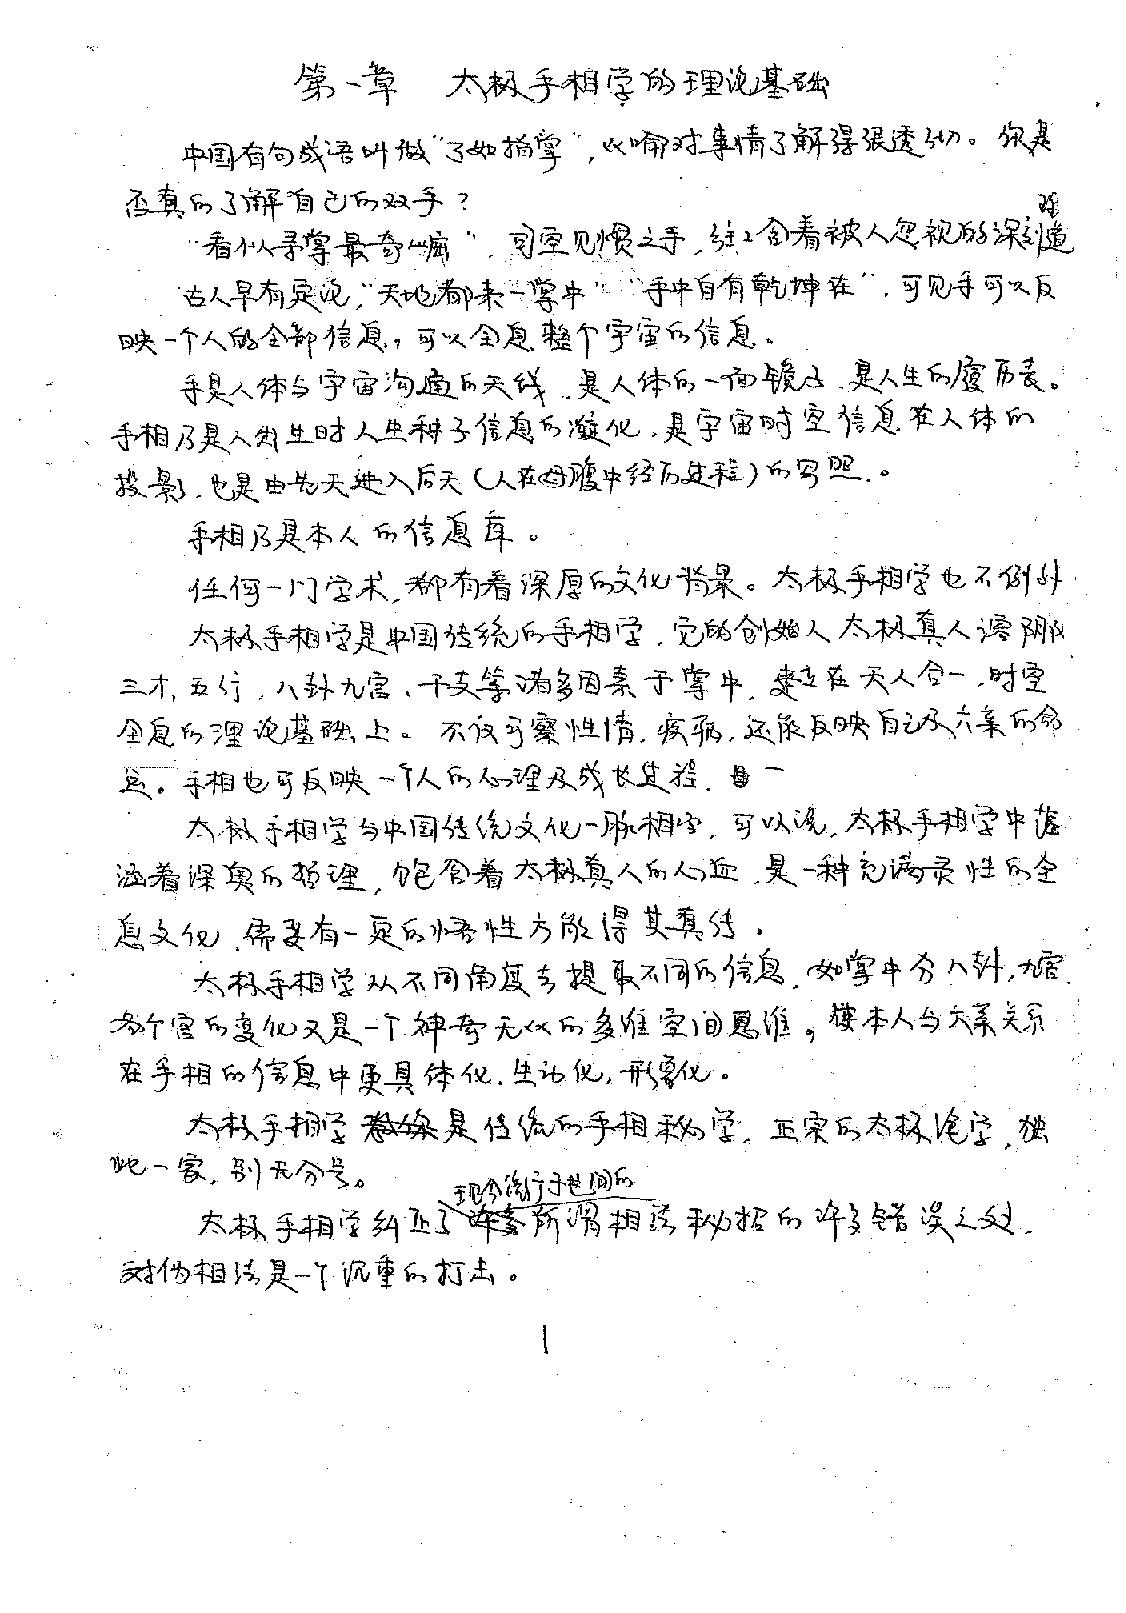 第一章 太极手相学的理论基础
中国有句成语叫做“了如指掌”，以喻对事情了解得很透切。你是
否真的了解自己的双手？
“看似寻常最奇崛”，司空见惯之手，往往含着被人忽视的深刻道
理
古人早有定论，“天地都来一掌中”“手中自有乾坤在”，可见手可以反
映一个人的全部信息，可以全息整个宇宙的信息。
手是人体与宇宙沟通的天线，是人体的一面镜子，是人生的履历表。
手相乃是人出生时人生种子信息的凝化，是宇宙时空信息在人体的
投影，也是由先天进入后天（人在母腹中经历过程）的写照。
手相乃是本人的信息库。
任何一门学术，都有着深厚的文化背景。太极手相学也不例外
太极手相学是中国传统的手相学，它的创始人太极真人寓阴阳
三才，五行，八卦九宫，干支等诸多因素于掌中，建立在天人合一，时空
全息的理论基础上。不仅可察性情，疾病，还能反映自己及六亲的命
运。手相也可反映一个人的心理及成长过程，
太极手相学与中国传统文化一脉相学，可以说，太极手相学中蕴
涵着深奥的哲理，饱含着太极真人的心血，是一种充满灵性的全
息文化，需要有一定的悟性方能得其真传。
太极手相学从不同角度去提取不同的信息，如掌中分八卦，九宫
各个宫的变化又是一个神奇无比的多维空间思维，使本人与六亲关系
在手相的信息中更具体化，生动化，形象化。
太极手相学是传统的手相秘学，正宗的太极绝学，独
此一家，别无分号。
现今流行于世间的
太极手相学纠正了所谓相法秘招的许多错误之处，
对伪相法是一个沉重的打击。
1